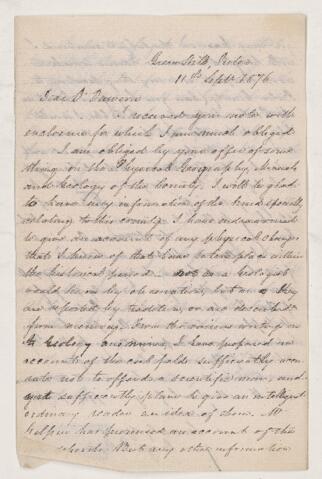 Green Hill, Pictou
11th Septr 1876
Dear Dr Dawson
I received your note with
enclosure for which I am much obliged
I am obliged by your offer of some
thing on the Physical Geography, Minerals
and Geology of the County. I will be glad
to have any information of the kind specially
relating to this county. I have endeavoured
to give an account of any physical changes
that I knew of that have taken place within
the historical period. not as a Geologist
would do on by observation, but as they
are reported by tradition, or are described
from memory. From the various writings on
the Geology and mines, I have prepared an
account of the coal fields sufficiently accu
rate not to offend a scientific man, and
yet sufficiently plain to give an intelligent
ordinary reader an idea of them. Mr
has promised an account of the
schools. But any other information